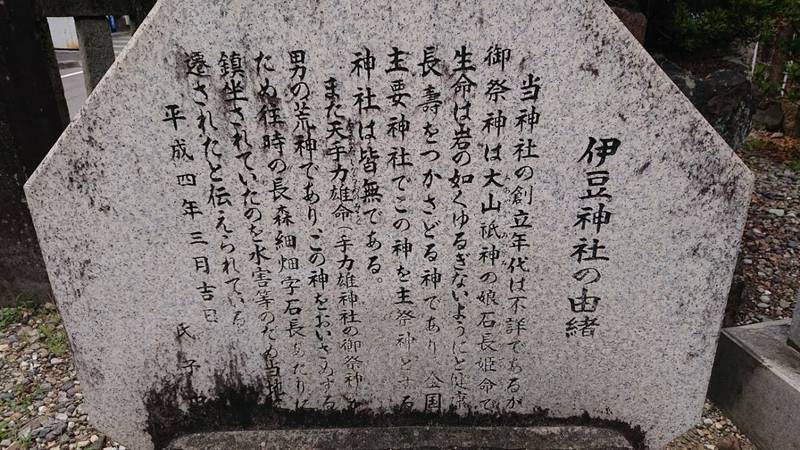 伊豆神社の由緒
当神社の創立年代は不詳であるが
御祭神は大山祇神の娘石長姫命で
生命は岩の如くゆるぎないようにと健康
長壽をつかさどる神であり、全国
主要神社でこの神を主祭神とする
神社は皆無である。
また天手力雄命(手力雄神社の御祭神)が
男の荒神であり、この神をおいさめする
ため往時の長森細畑字石長あたりに
鎮坐されていたのを水害等のため当地に
遷されたと伝えられている
平成四年三月吉日
氏子